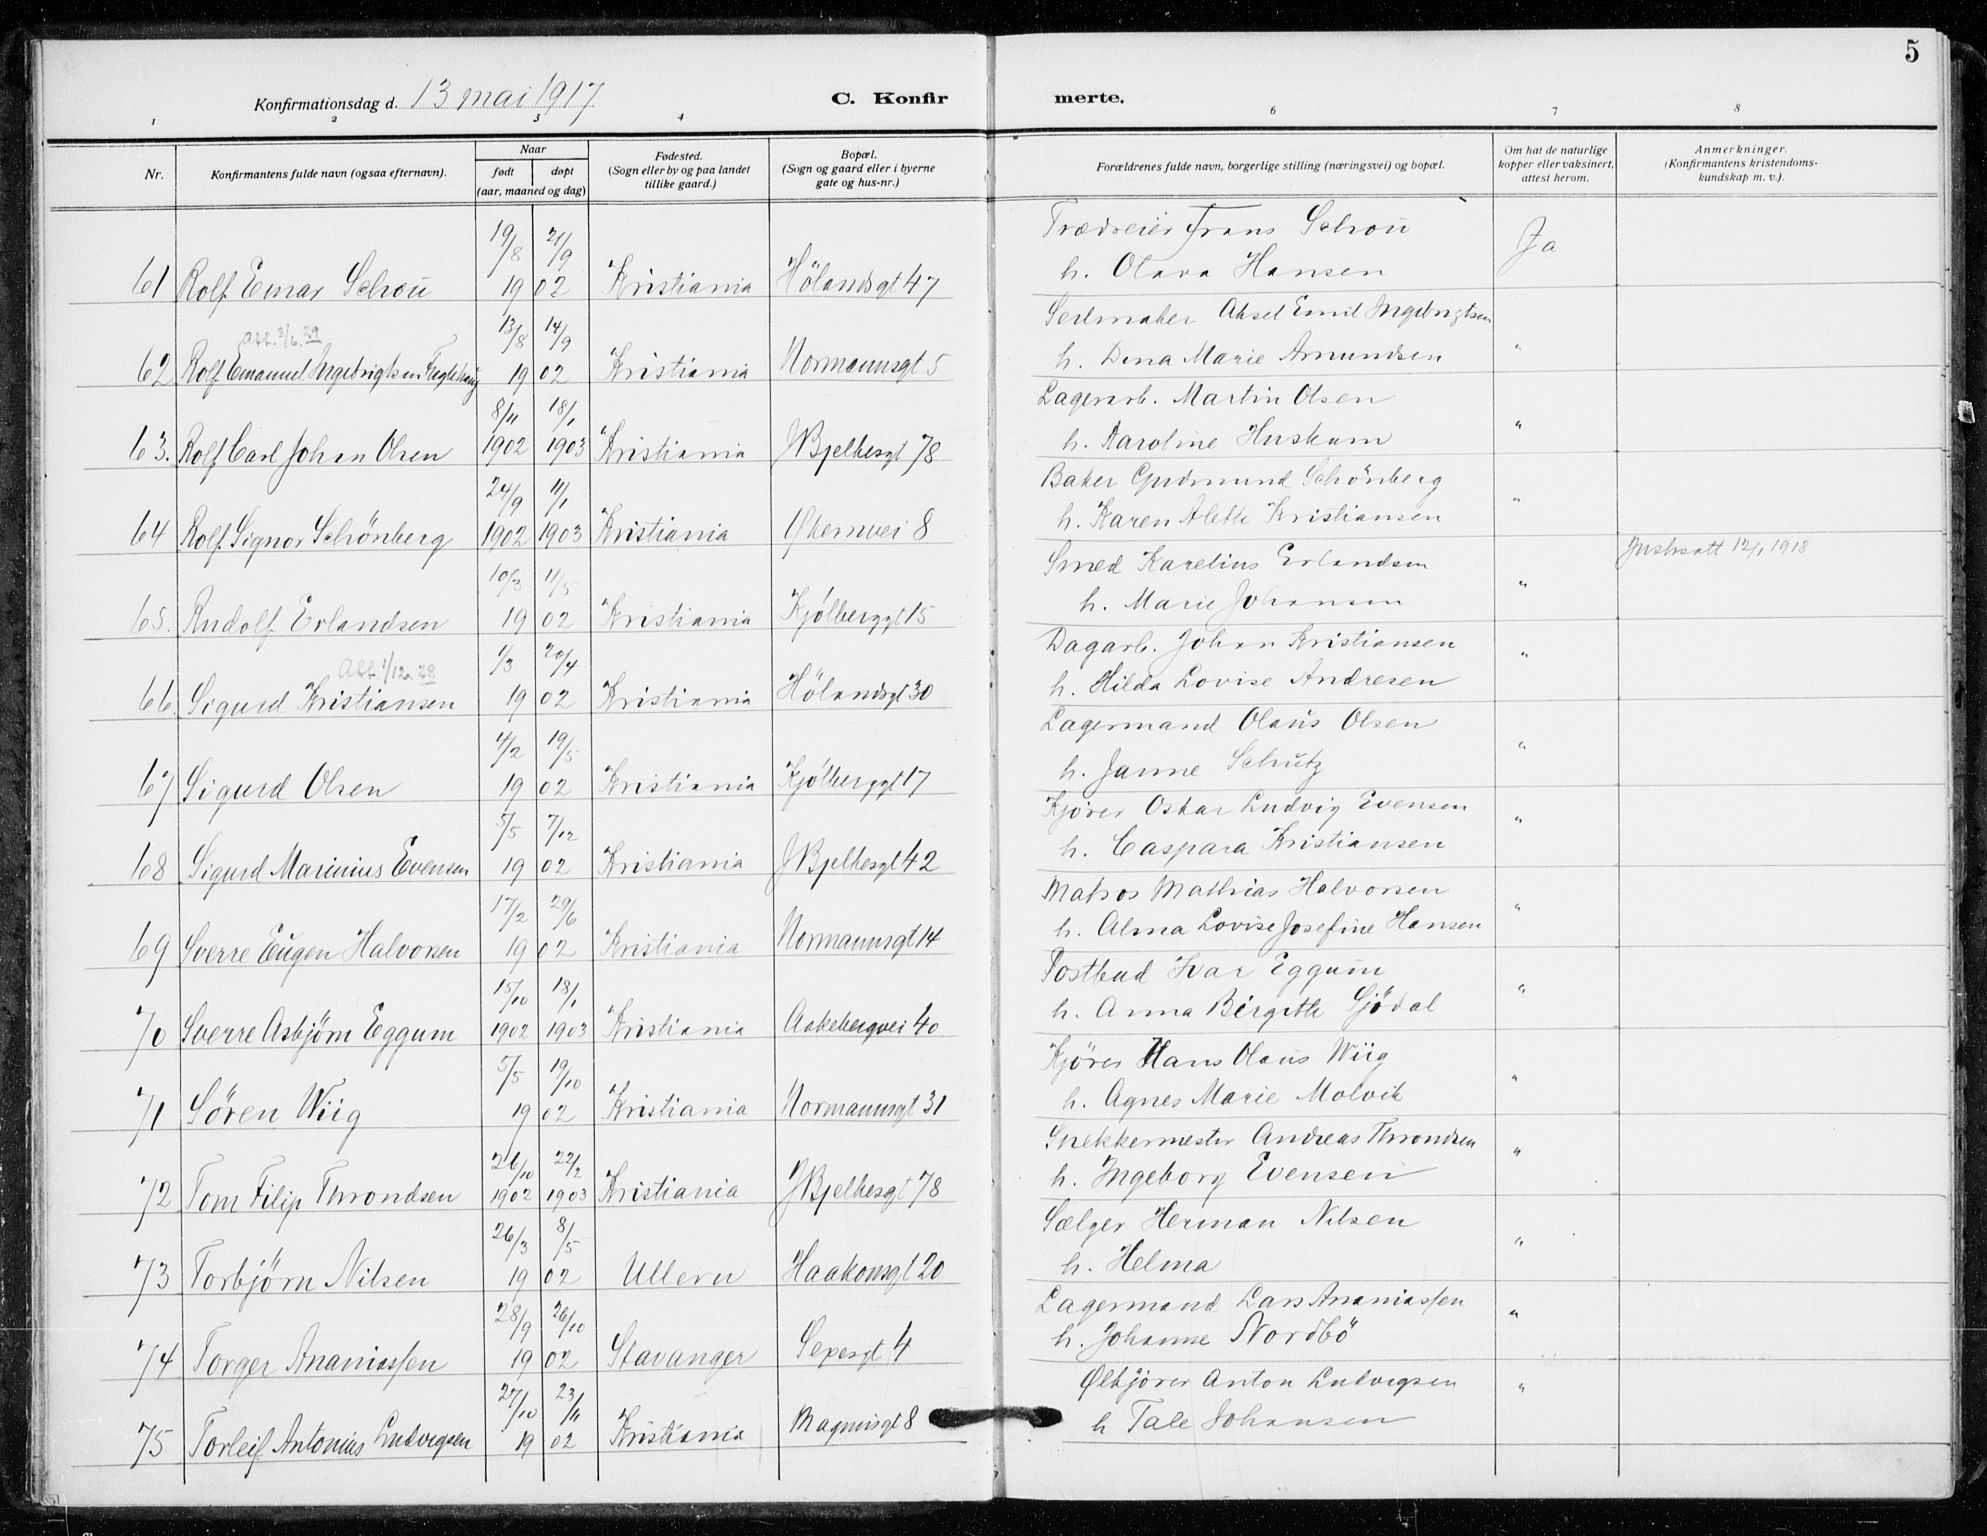 5
Konfirmationsdag d. 13 mai 1917.
C. Konfirmerte.
1 2 3 4 6 7 8
Nr. Konfirmantens fulde navn (ogsaa efternavn). Naar født døpt (aar, maaned og dag) Fødested. (Sogn eller by og paa landet tillike gaard.) Bopæl. (Sogn og gaard eller i byerne gate og hus-nr.) Forældrenes fulde navn, borgerlige stilling (næringsvei) og bopæl. Om hat de naturlige kopper eller vaksinert, attest herom. Anmerkninger. (Konfirmantens kristendomskundskap m. v.).
19/8 21/9 Frans Schou Ja
61 Rolf Einar Schou 19 02 Kristiania Hölandsgt 47 h. Olava Hansen
Att. 3/6.29 13/8 14/9 Seilmaker Aksel Emil Ingebrigtsen
62 Rolf Emanuel Ingebrigtsen 19 02 Kristiania Normannsgt 5 h. Dina Marie Amundsen "
8/11 18/1 Lagerarb. Martin Olsen
63. Rolf Carl Johan Olsen 1902 1903 Kristiania J Bjelkesgt 78 h. Karoline Huskum "
24/9 11/1 Baker Gudmund Schönberg
64 Rolf Signor Schönberg 1902 1903 Kristiania Økernvei 8 h. Karen Alette Kristiansen "
10/3 11/5 Smed Karelius Erlandsen 12/1 1918
65. Rudolf Erlandsen 19 02 Kristiania Kjölberggt 15 h. Marie Johansen "
Att. 1/12.28 1/3 20/4 Dagarb. Johan Kristiansen
66. Sigurd Kristiansen 19 02 Kristiania Hölandsgt 30 h. Hilda Lovise Andresen "
4/2 19/5 Lagermand Olaus Olsen
67 Sigurd Olsen 19 02 Kristiania Kjölberggt 17 h. Janne Schütz "
5/5 7/12 Kjörer Oskar Ludvig Evensen
68 Sigurd Marinius Evensen 19 02 Kristiania J Bjelkesgt 42 h. Caspara Kristiansen "
17/2 29/6 Matros Mathias Halvorsen
69 Sverre Eugen Halvorsen 19 02 Kristiania Normannsgt 14 h. Alma Lovise Josefine Hansen "
15/10 18/1 Postbud Ivar Eggum
70 Sverre Asbjörn Eggum 1902 1903 Kristiania Aakebergvei 40 h. Anna Birgitte Sjödal "
5/5 19/10 Kjörer Hans Olaus Wiig
71 Sören Wiig 19 02 Kristiania Normannsgt 31 h. Agnes Marie Molvik "
26/10 22/2 Snekkermester Andreas Throndsen
72 Tom Filip Throndsen 1902 1903 Kristiania J Bjelkesgt 78 h. Ingeborg Evensen "
26/3 8/5 Sælger Herman Nilsen
73 Torbjörn Nilsen 19 02 Ullern Haakonsgt 20 h. Helma "
28/9 26/10 Lagermand Lars Ananiassen
74 Torger Ananiassen 19 02 Stavanger Sexesgt 4 h. Johanne Nordbö "
27/10 23/11 Ølkjörer Anton Ludvigsen
75 Torleif Antonius Ludvigsen 19 02 Kristiania Magnusgt 8 h Tale Johansen "